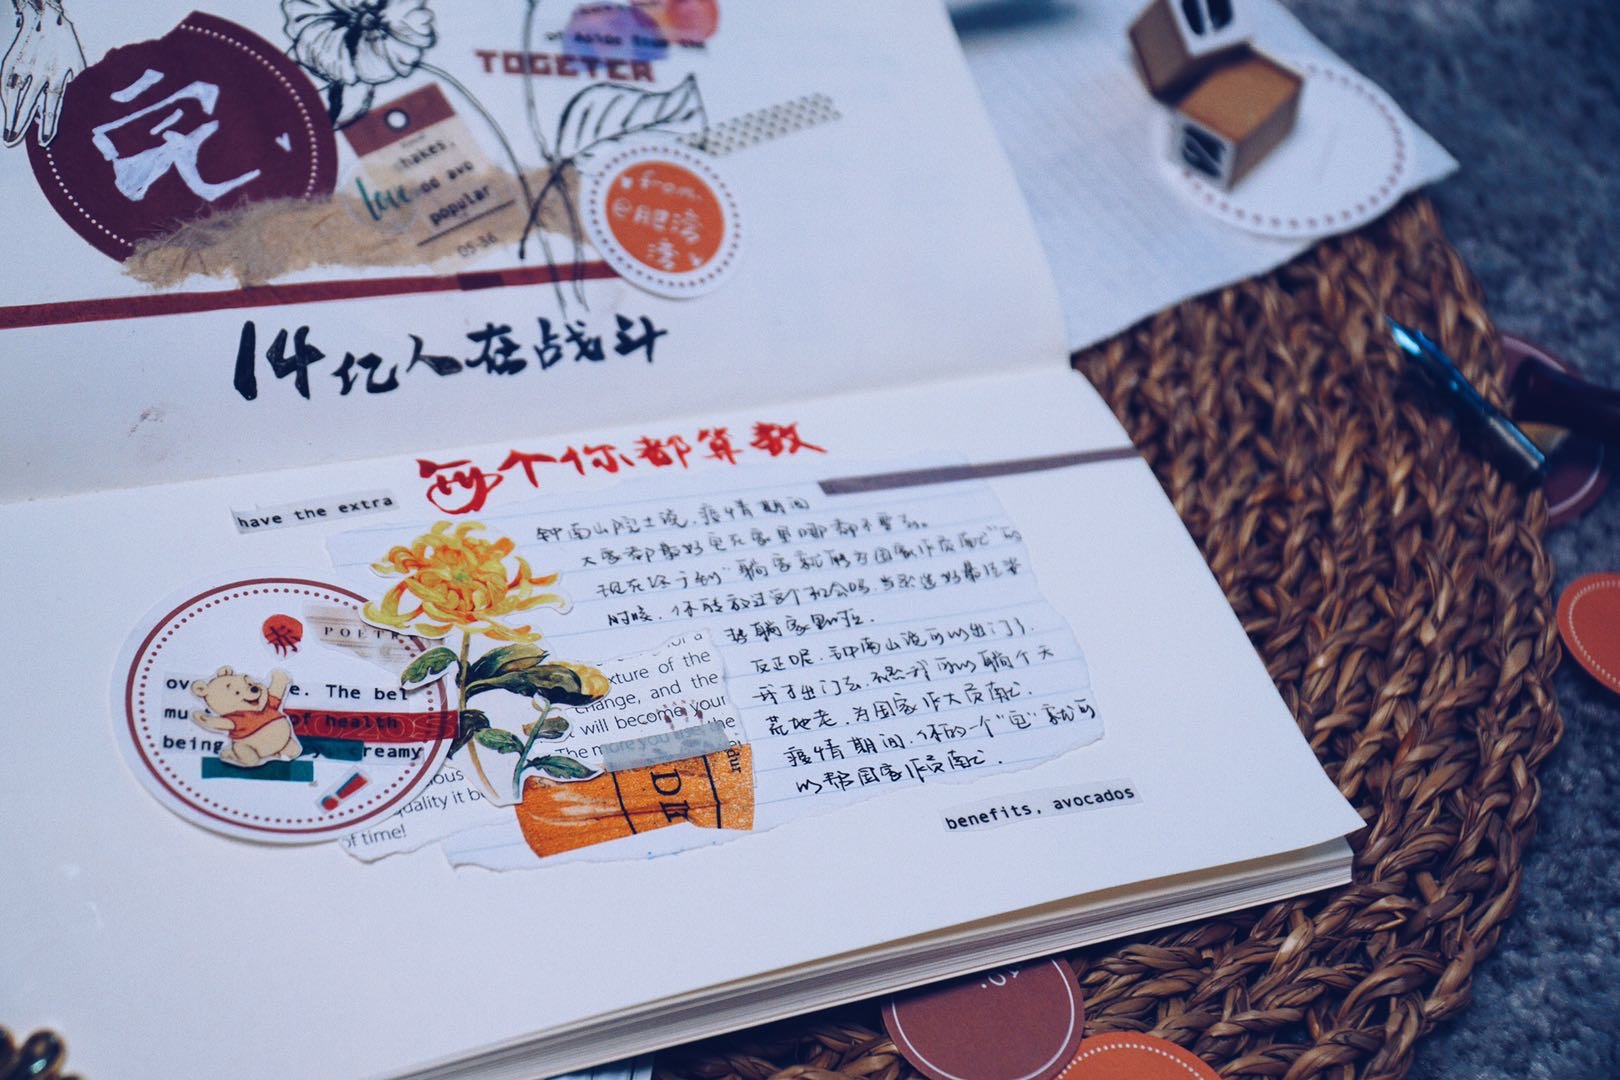 TOGETER
hakes,
love
os avo
popular
05-36
from.
@肥湾
湾
14亿人在战斗
每个你都算数
have the extra
钟南山院士说，疫情期间
大家都最好宅在家里哪都不要去。
现在你于到"躺家就能为国家作贡献"的
时候，你能放过这个机会吗，当然选好最佳姿
势躺家里啊。
反正呢，钟南山说可以出门了，
我才出门去，不然我可以躺个天
荒地老，为国家作大贡献。
疫情期间，你的一个"宅"就可
以帮国家作贡献。
赤
POETR
ov e. The bet
mu of health
being y, creamy
for a
xture of the
change, and the
t will become your
The more you use the
ious
quality it be
of time!
benefits, avocados